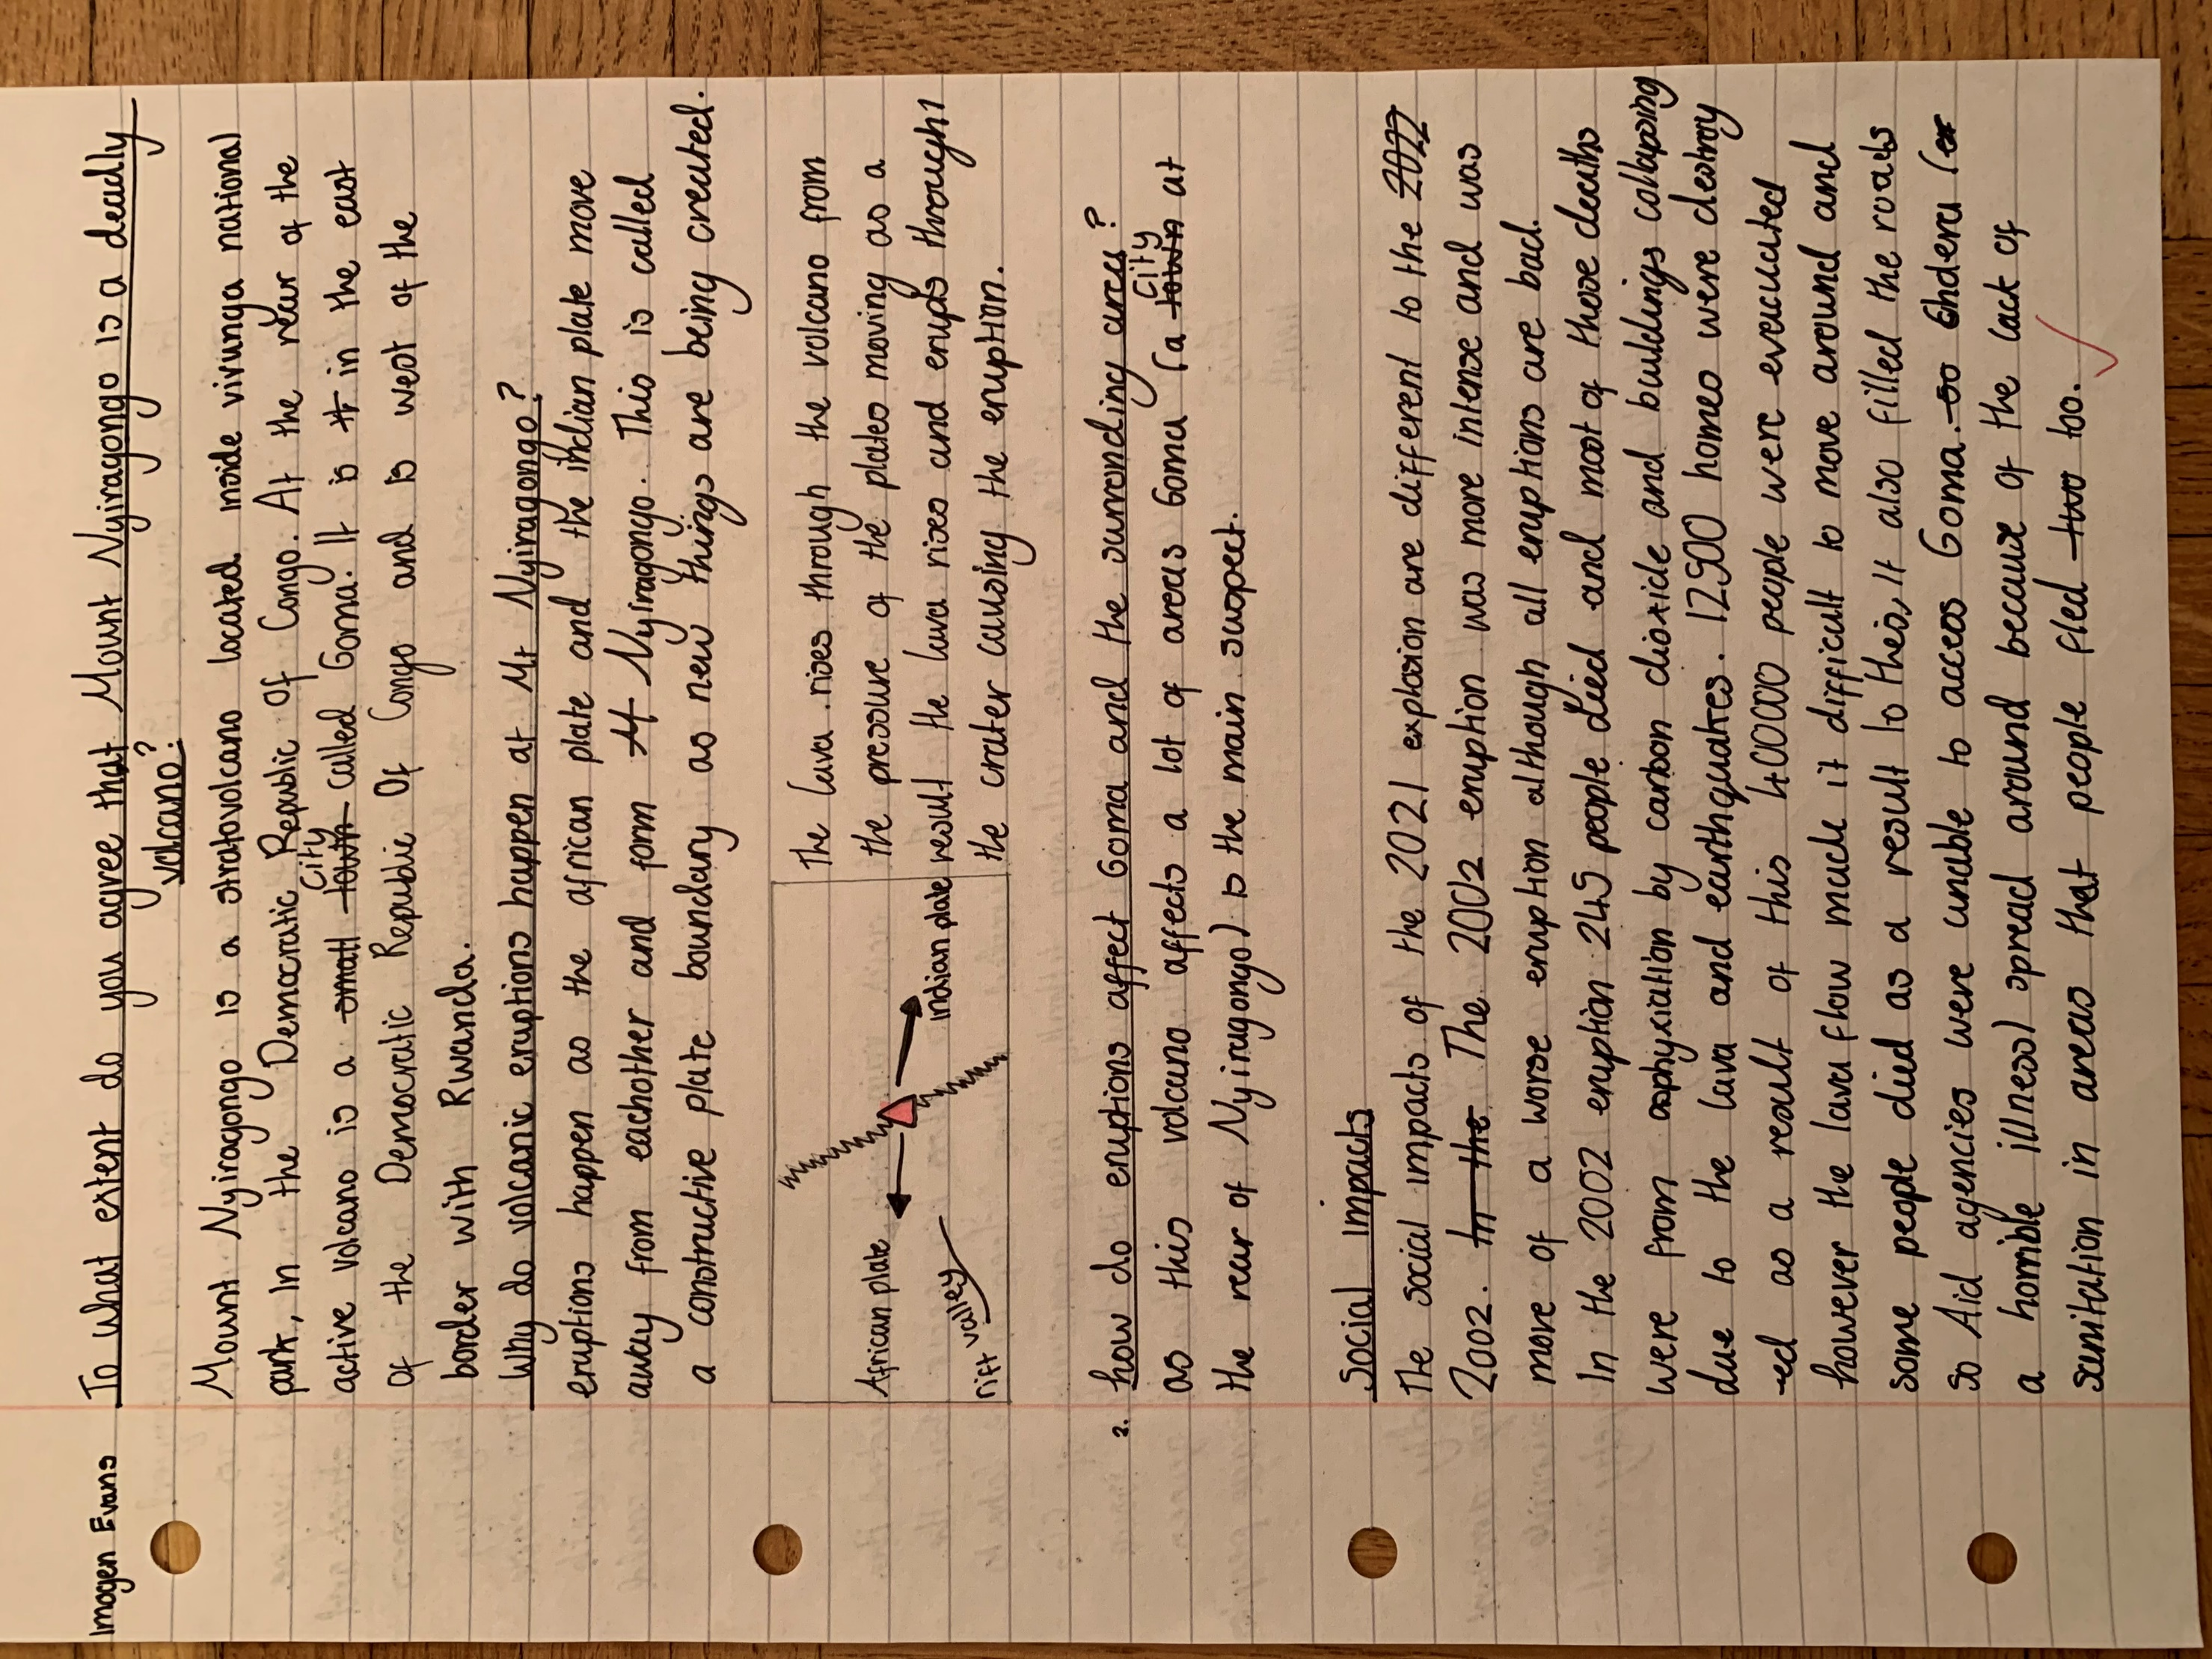 Imogen Evans
To what extent do you agree that Mount Nyiragongo is a deadly
volcano?
Mount Nyiragongo is a stratovolcano located inside virunga national
park, in the Democratic Republic of Congo. At the rear of the
active volcano is a small town city called Goma. It is it in the east
of the Democratic Republic Of Congo and is west of the
border with Rwanda.
Why do volcanic eruptions happen at Mt Nyiragongo?
eruptions happen as the african plate and the indian plate move
away from eachother and form At Nyiragongo. This is called
a constructive plate boundary as new things are being created.
African plate
rift valley
Indian plate
The lava rises through the volcano from
the pressure of the plates moving as a
result the lava rises and erupts through
the crater causing the eruption.
2. how do eruptions affect Goma and the surronding areas?
as this volcano affects a lot of areas Goma (a town city at
the rear of Nyiragongo) is the main suspect.
Social impacts
The social impacts of the 2021 explosion are different to the 2022
2002. In the The 2002 eruption was more intense and was
more of a worse eruption although all eruptions are bad.
In the 2002 eruption 245 people died and most of those deaths
were from asphyxiation by carbon dioxide and buildings collapsing
due to the lava and earthquakes. 12500 homes were destroy
-ed as a result of this 400000 people were evacuated
however the lava flow made it difficult to move around and
some people died as a result to this, It also filled the roads
so Aid agencies were unable to access Goma. so Cholera (or
a horrible illness) spread around because of the lack of
sanitation in areas that people fled two too.